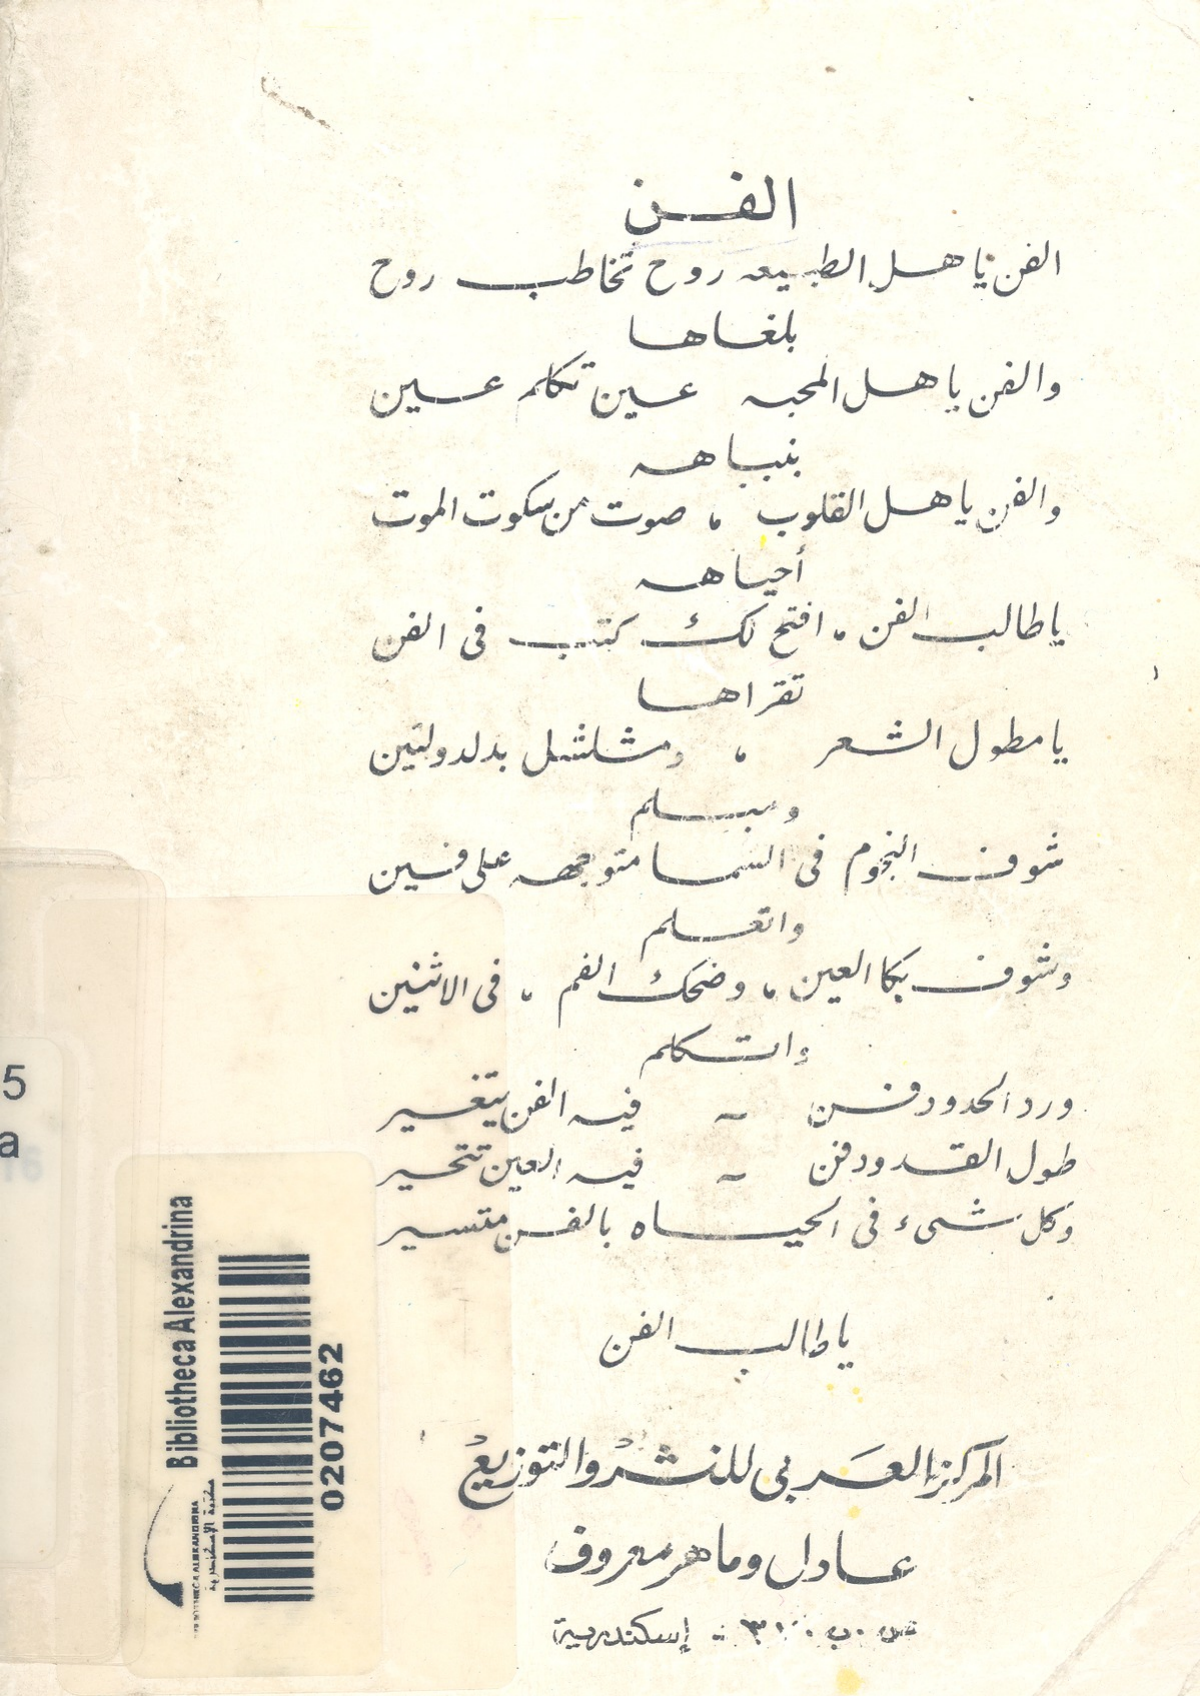 الفن
الفن ياهل الطبيعه روح تخاطب روح
بلغاها
والفن ياهل المحبه عين تكلم عين
بنباهه
والفن ياهل القلوب ، صوت من سكوت الموت
أحياهه
ياطالب الفن ، افتح لك كتب فى الفن
تقراها
يامطول الشعر ، ومشلشل بدلدولتين
ومبلم
شوف النجوم فى السما متوجهه على فنين
واتعلم
وشوف بكا العين ، وضحك الفم ، فى الاثنين
واتكلم
ورد الخدود فن ~ فيه الفن يتغير
طول القدود فن ~ فيه العين تتحير
وكل شىء فى الحياه بالفن متسير
ياطالب الفن
المركز العربى للنشر والتوزيع
عادل وماهر معروف
ص.ب. إسكندرية
5
a
Bibliotheca Alexandrina
0207462
BIBLIOTHECA ALEXANDRINA
مكتبة الإسكندرية